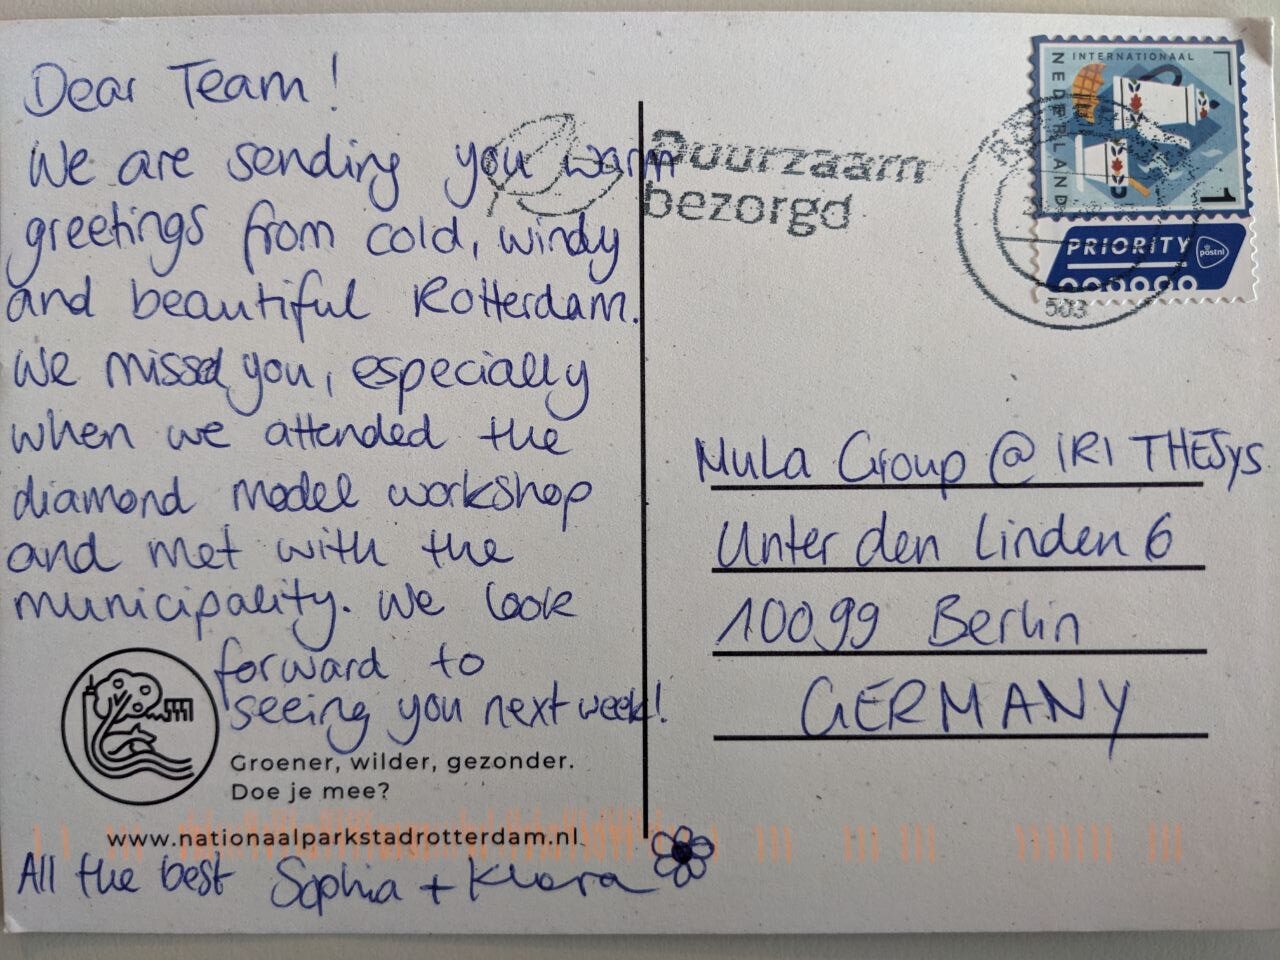 Dear Team!
We are sending you warm
greetings from cold, windy
and beautiful Rotterdam.
We missed you, especially
when we attended the
diamond model workshop
and met with the
municipality. We look
forward to
seeing you next week!
Groener, wilder, gezonder.
Doe je mee?
www.nationaalparkstadrotterdam.nl
All the best Sophia + Klara
Duurzaam
bezorgd
INTERNATIONAAL
NEDERLAND
1
PRIORITY
postnl
503
MuLa Group @ IRI THESys
Unter den Linden 6
10099 Berlin
GERMANY